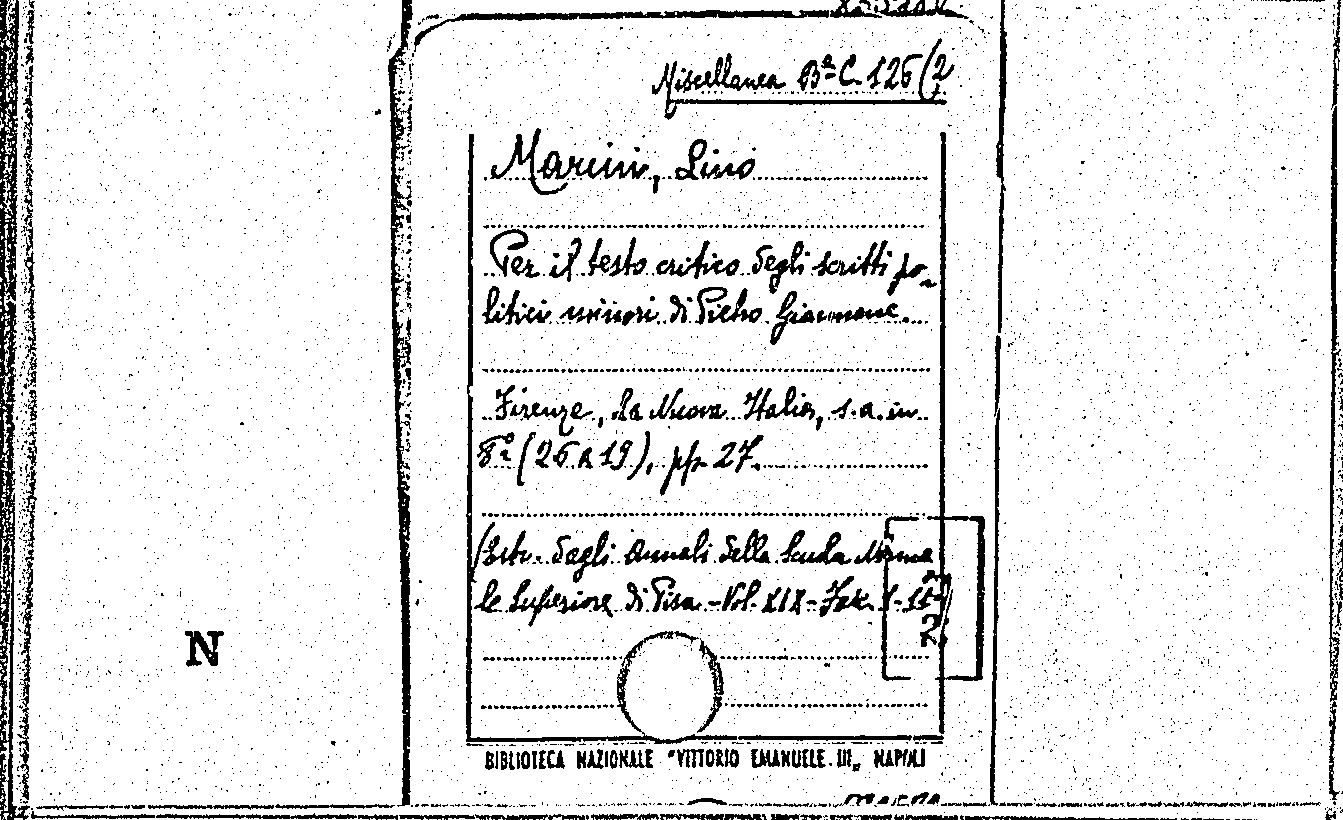 Miscellanea Bª C. 126 (2
Marini, Lino
Per il testo critico degli scritti po-
litici minori di Pietro Giannone.
Firenze, La Nuova Italia, s.a. in
8º (26 x 19), pp. 27.
(Estr. dagli Annali della Scuola Norma
le Superiore di Pisa - Vol. XIX - Fasc. I-II)
N
BIBLIOTECA NAZIONALE "VITTORIO EMANUELE III„ NAPOLI